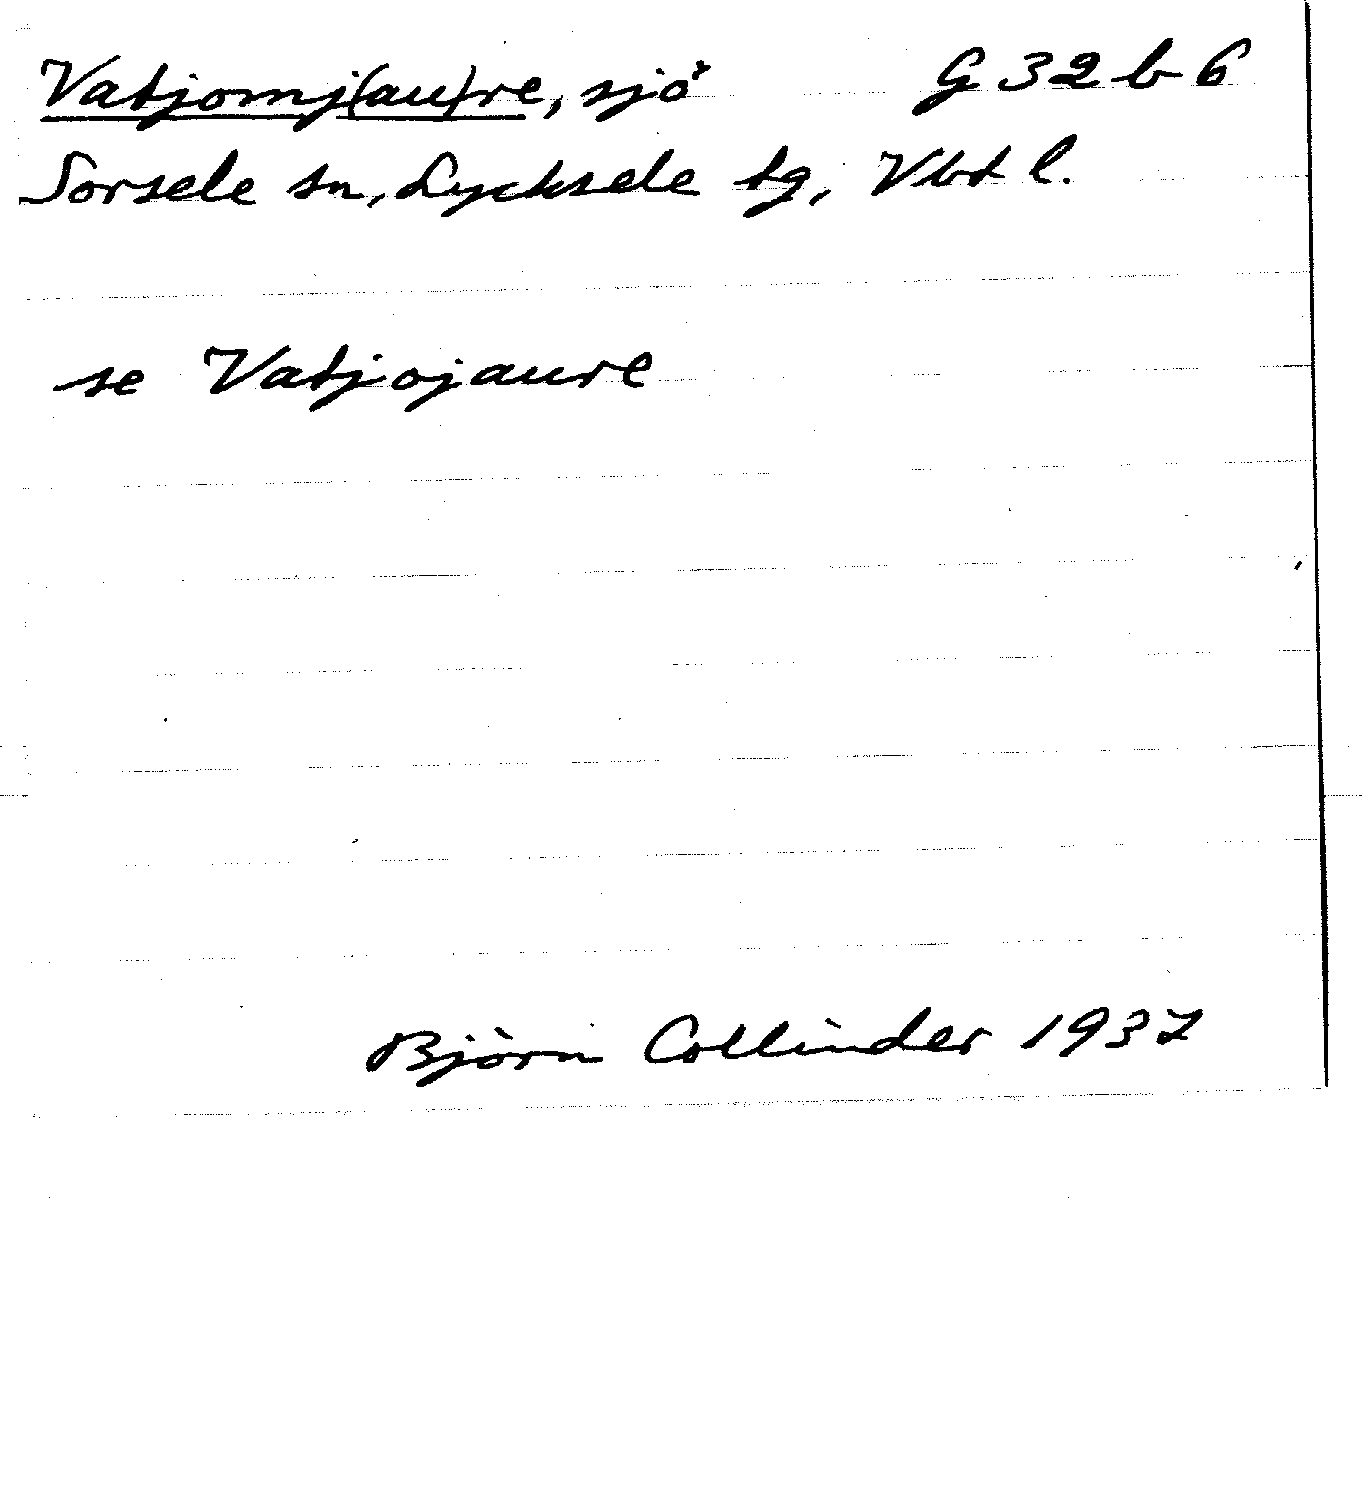 Vatjomj(au)re, sjö G 32 b 6
Sorsele sn, Lycksele tg, Vbt l.
se Vatjojaure
Björn Collinder 1937